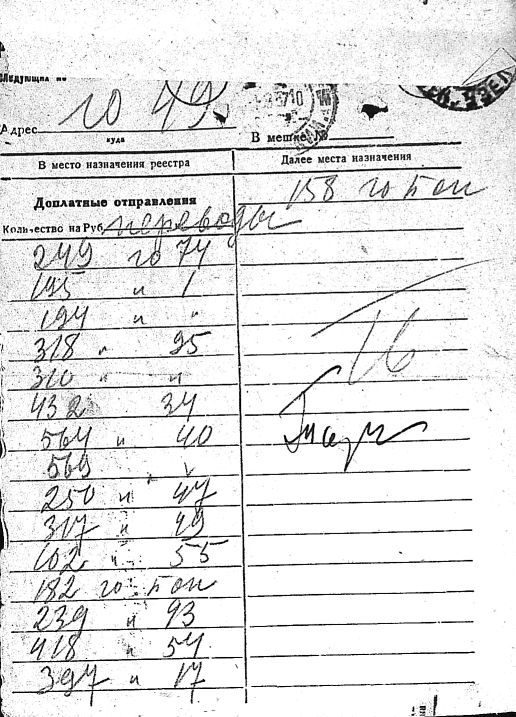 Следующий №
Адрес го 49
куда
В мешке №
В место назначения реестра
Далее места назначения
Доплатные отправления
158 го Кон
Количество на Руб. переводы
249 го 74
195 и 1
194 и "
318 " 95
310 " и
432 34
564 и 40
569
250 и 47
317 и 49
102 " 55
182 го Кон
239 и 93
418 " 54
397 и 17
16